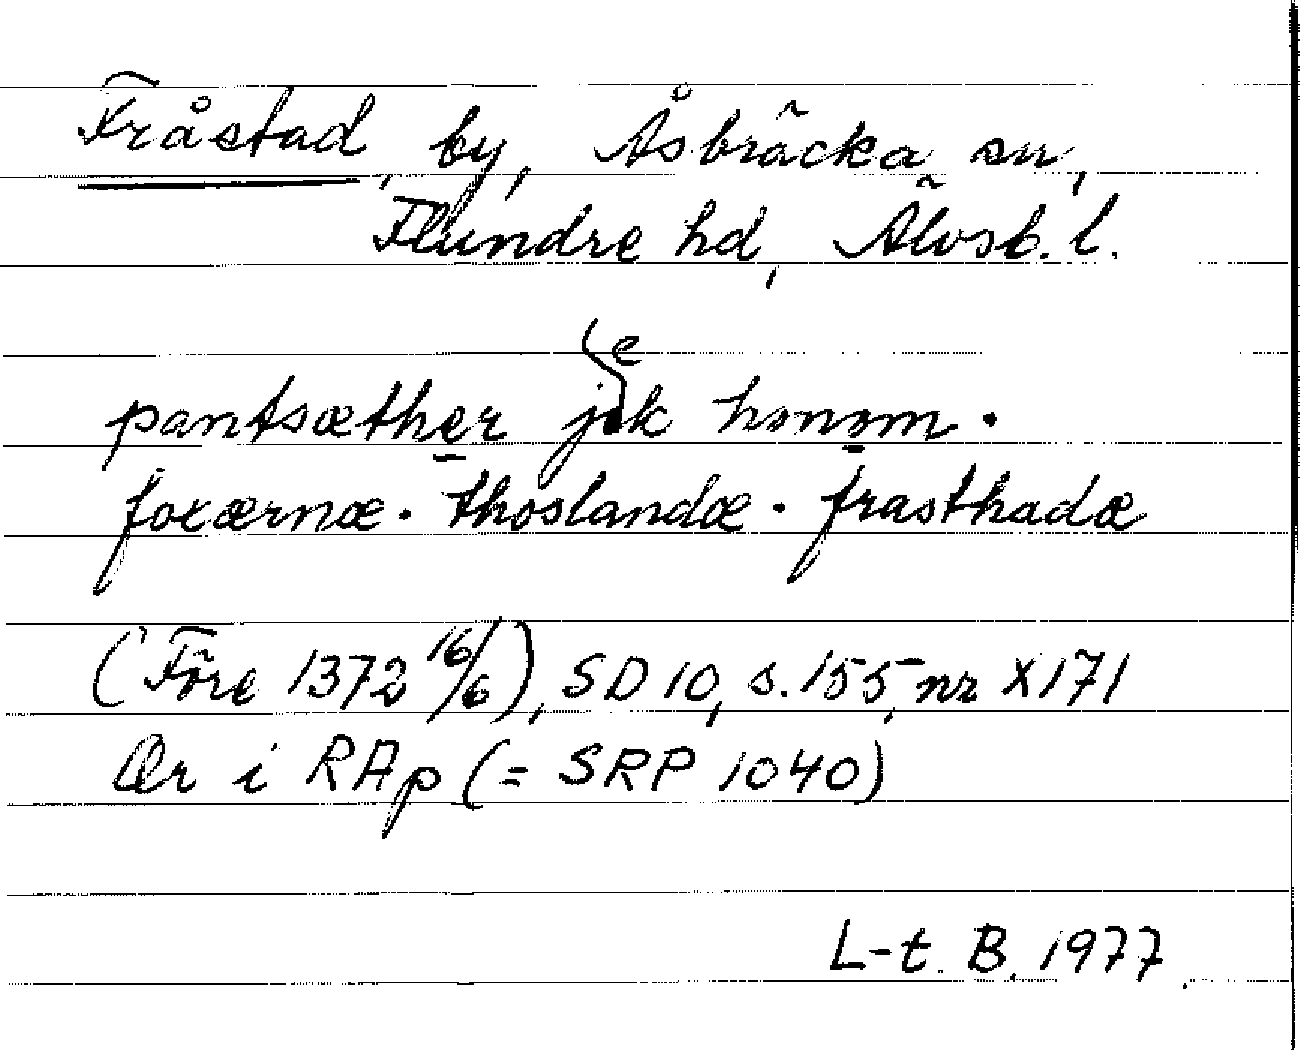 Fråstad, by, Åsbräcka sn,
Flundre hd, Älvsb. l.
pantsæther jek honom ·
foxærnæ · thoslandæ · frasthadæ
(Före 1372 16/6), SD 10, s. 155, nr X171
Or i RAp (= SRP 1040)
L-t. B. 1977.